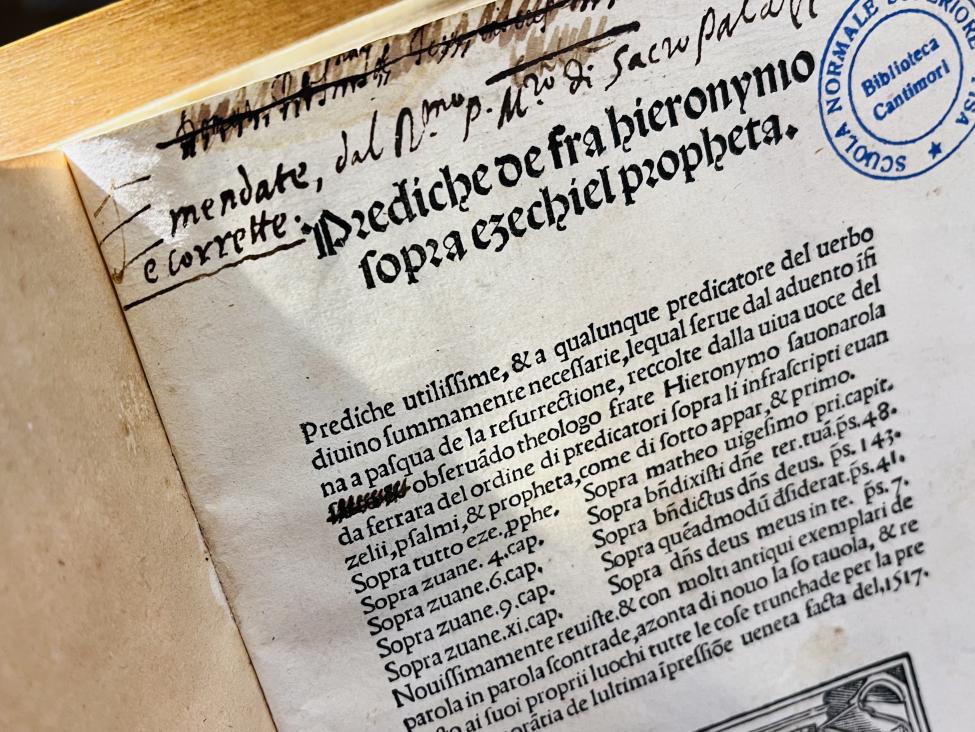 mendate, dal R.mo p. M.ro di Sacro Pala
e corrette.
SCUOLA NORMALE SUPERIORE
Biblioteca
Cantimori
Prediche de fra hieronymo
sopra ezechiel propheta.
Prediche utiliſſime, & a qualunque predicatore del uerbo
diuino ſummamente neceſſarie, lequal ſerue dal aduento iſi
na a paſqua de la reſurrectione, reccolte dalla uiua uoce del
obſeruādo theologo frate Hieronymo ſauonarola
da ferrara del ordine di predicatori ſopra li infraſcripti euan
zelii, pſalmi, & propheta, come di ſotto appar, & primo.
Sopra tutto eze. pphe.
Sopra zuane. 4. cap.
Sopra zuane. 6. cap.
Sopra zuane. 9. cap.
Sopra zuane. xi. cap.
Sopra matheo uigeſimo pri. capit.
Sopra bñdixiſti dñe ter. tuā. p̄s. 48.
Sopra bñdictus dñs deus. p̄s. 143.
Sopra quéadmodū dſiderat. p̄s. 41.
Sopra dñs deus meus in te. p̄s. 7.
Nouiſſimamente reuiſte. & con molti antiqui exemplari de
parola in parola ſcontrade, azonta di nouo la ſo tauola, & re
ai ſuoi proprii luochi tutte le coſe trunchade per la pre
de lultima īpreſſiōe ueneta facta del, 1517.